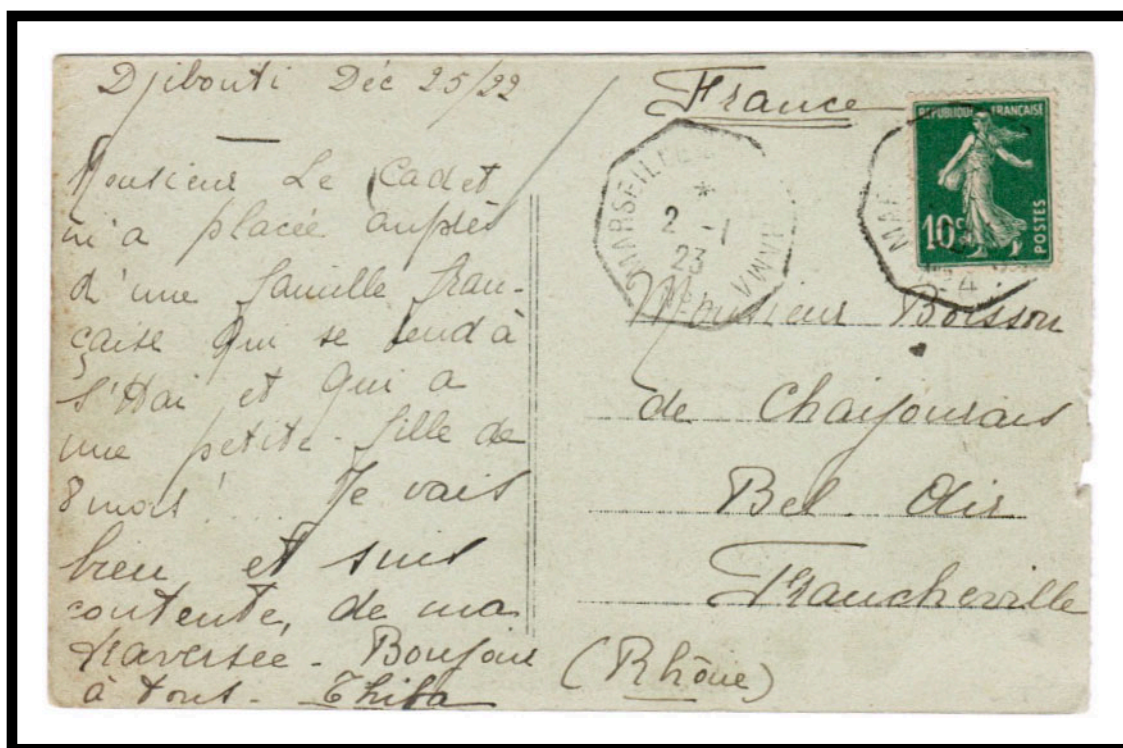 Djibouti Déc 25/22
Monsieur Le Cadet
m'a placée auprès
d'une famille fran-
çaise qui se rend à
et qui a
une petite fille de
8 mois! Je vais
bien et suis
contente, de ma
traversée - Bonjour
à tous -
France
RÉPUBLIQUE FRANÇAISE
10c
POSTES
MARSEILLE
*
2 -1
23
MAR
4
Monsieur Boisson
de
Bel Air
Francheville
(Rhône)